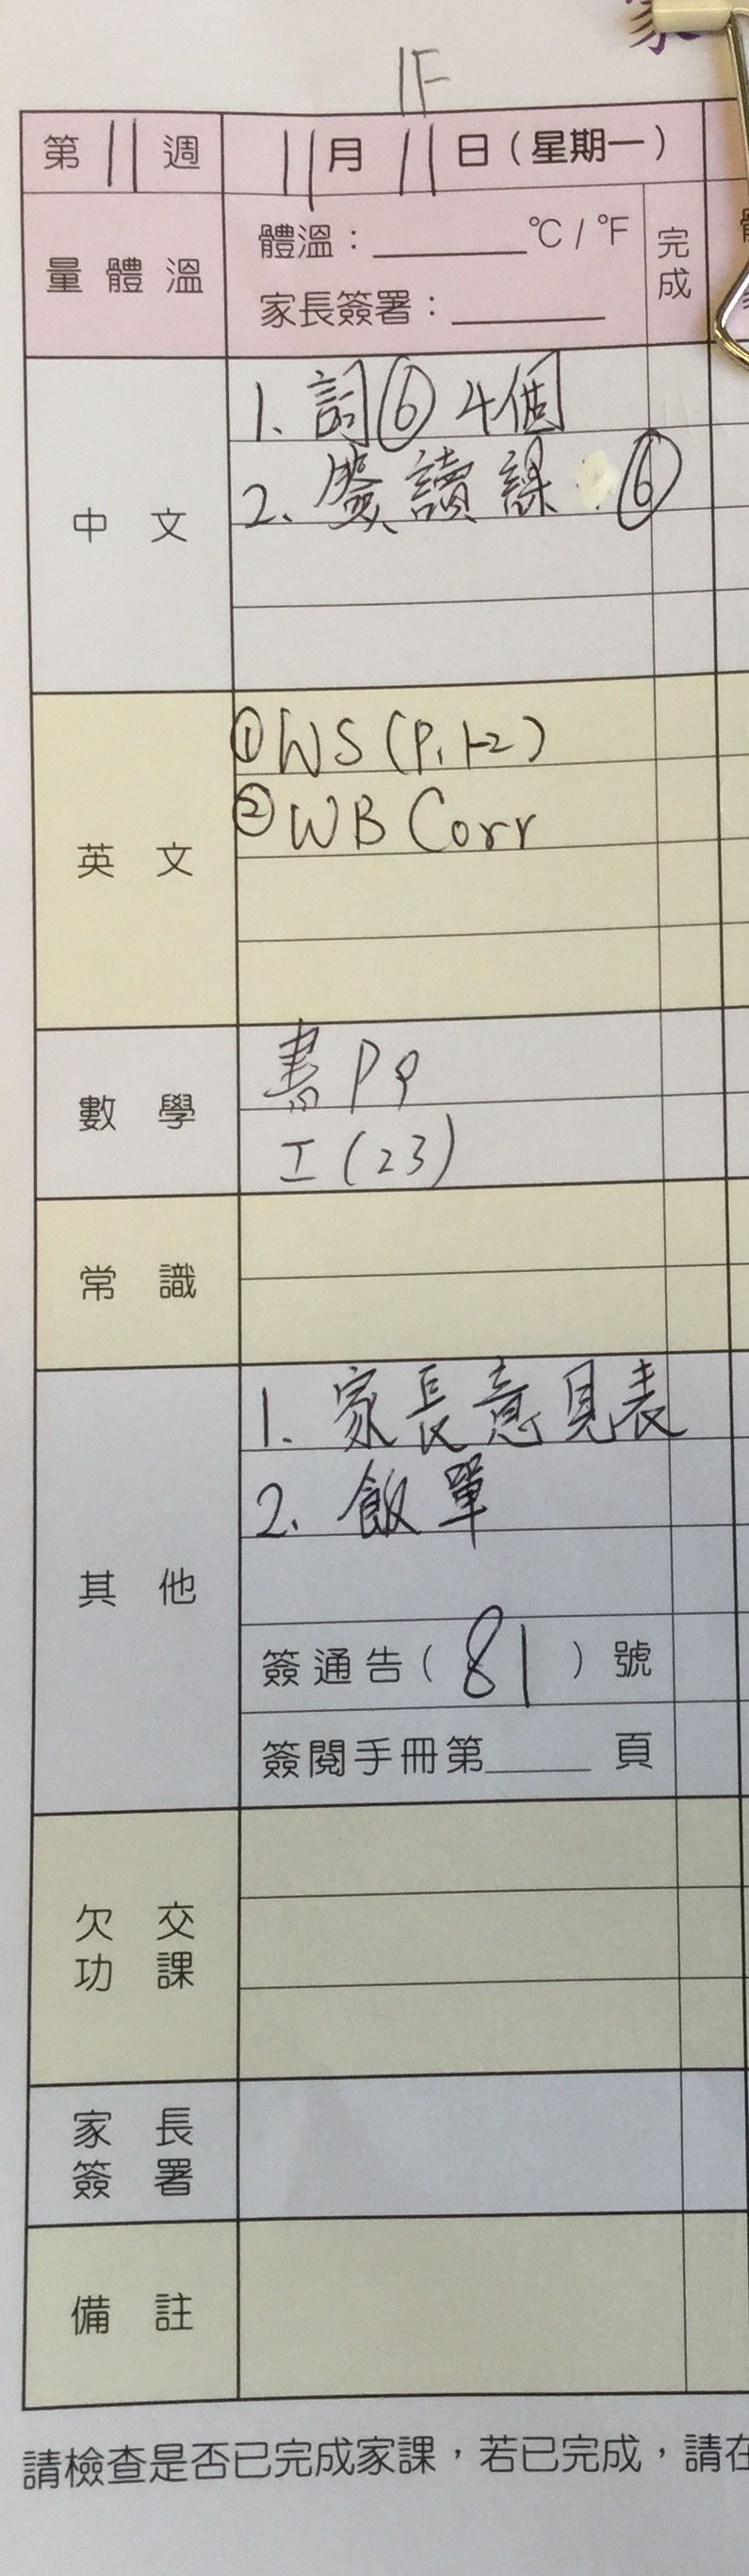 家
1F
第11週 11月11日(星期一)
量體溫 體溫:______°C/°F 完成
家長簽署:______
中文
1. 詞⑥4個
2. 簽讀課⑥
英文
①WS(P.1-2)
②WB Corr
數學
書P9
工(23)
常識
其他
1. 家長意見表
2. 飯單
簽通告(81)號
簽閱手冊第______頁
欠交
功課
家長
簽署
備註
請檢查是否已完成家課,若已完成,請在